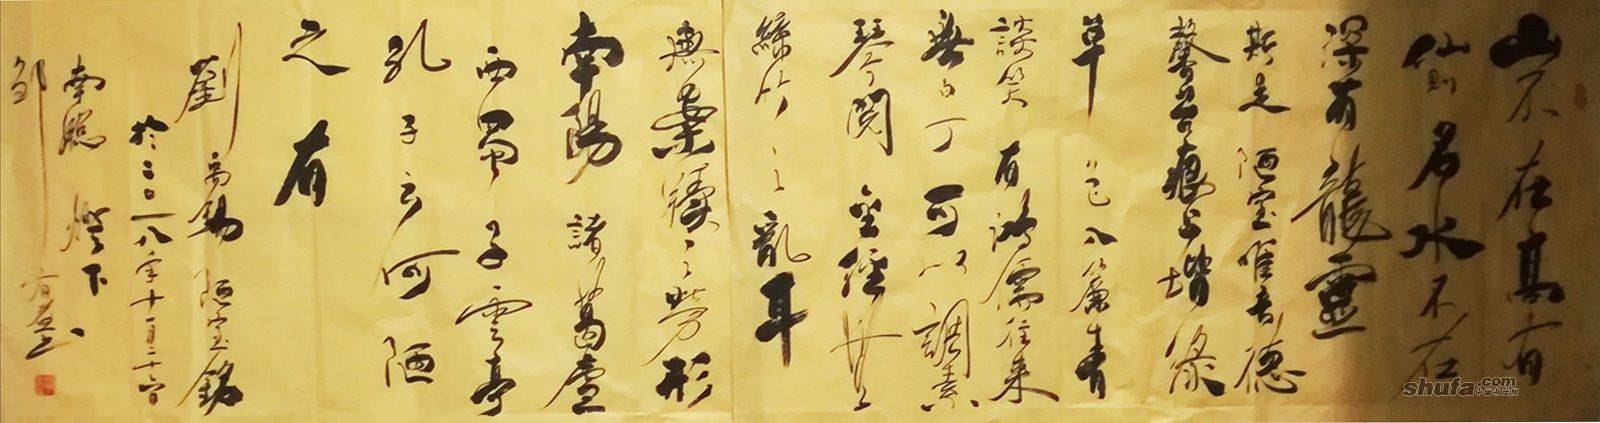 山不在高有
仙則名水不在
深有龍靈
斯是陋室唯吾德
馨苔痕上堦緑
草色入簾青
談笑有鴻儒往来
無白丁可以調素
琴閲金經無
絲竹之亂耳
無案牘之勞形
南陽諸葛廬
西蜀子雲亭
孔子云何陋
之有
劉禹錫陋室銘
於二〇一八年十一月二十
南牕燈下
邹
shufa.com